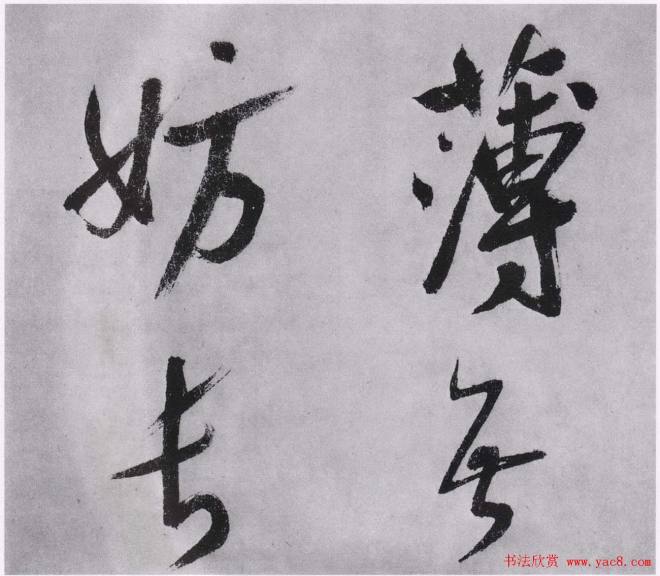 薄無
妨長
书法欣赏 www.yac8.com